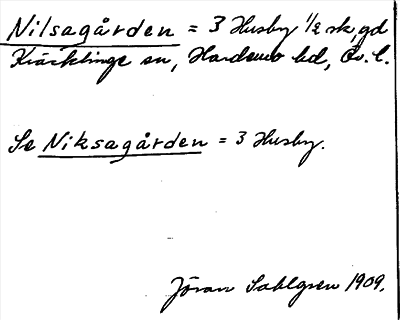 Nilsagården = 3 Husby 1/2 sk, gd
Kräcklinge sn, Hardemo hd, Ör. l.
Se Niksagården = 3 Husby.
Jöran Sahlgren 1909.